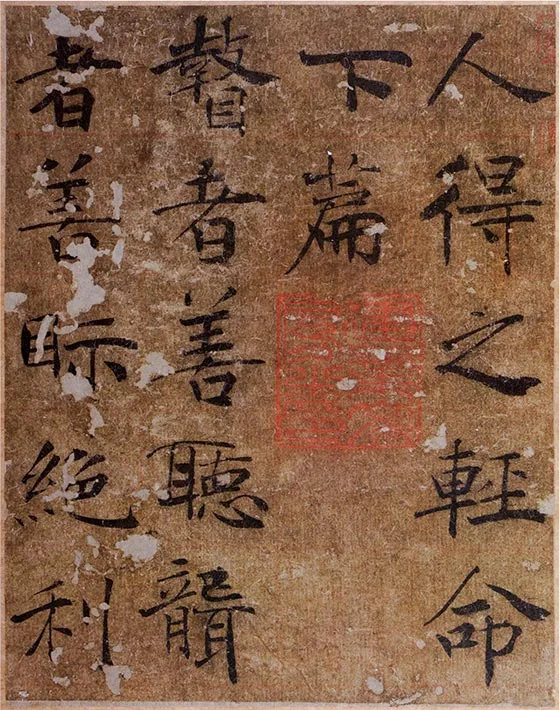 人得之輕命
下篇
瞽者善聽聾
者善眎絶利